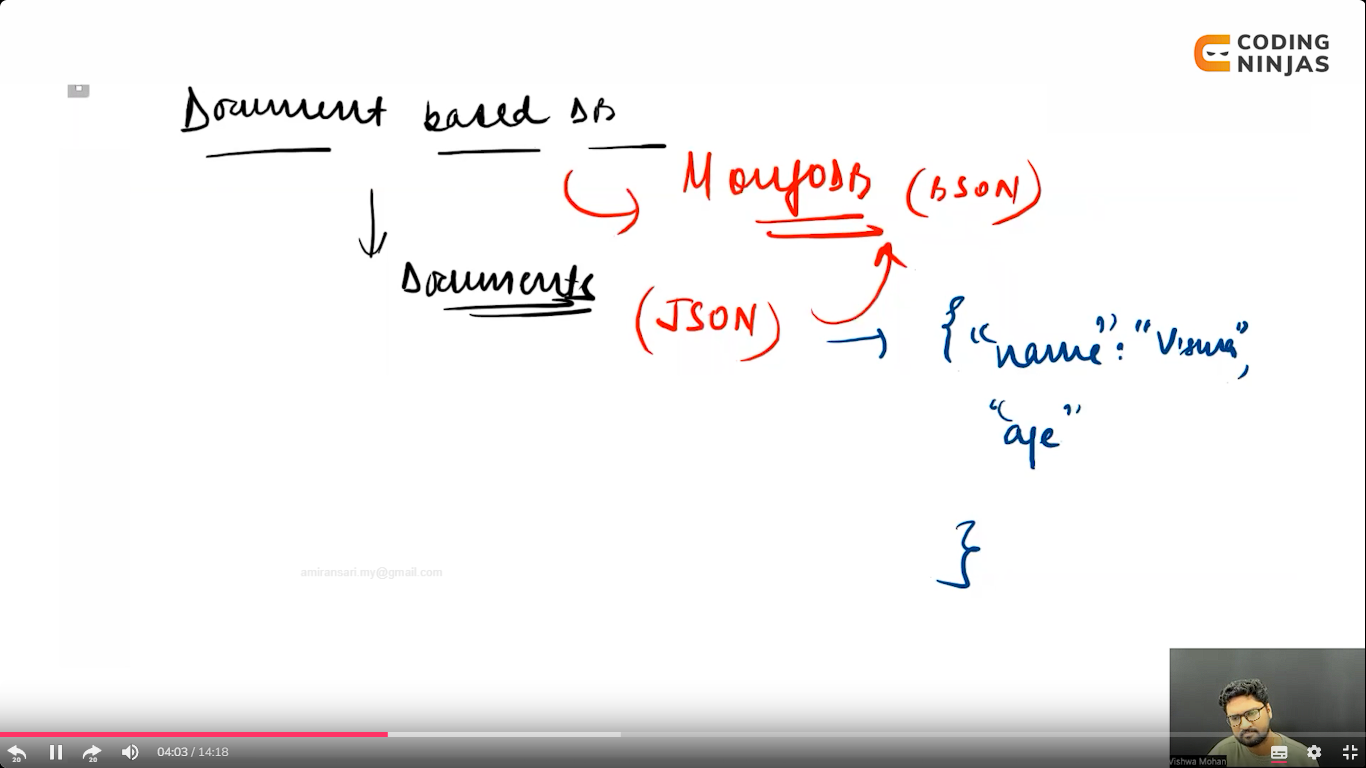 CODING
NINJAS
Document based DB
MongoDB (BSON)
Documents
(JSON)
{ "name" : "Vishwa",
"age"
}
amiransari.my@gmail.com
Vishwa Mohan
20
20
04:03 / 14:18